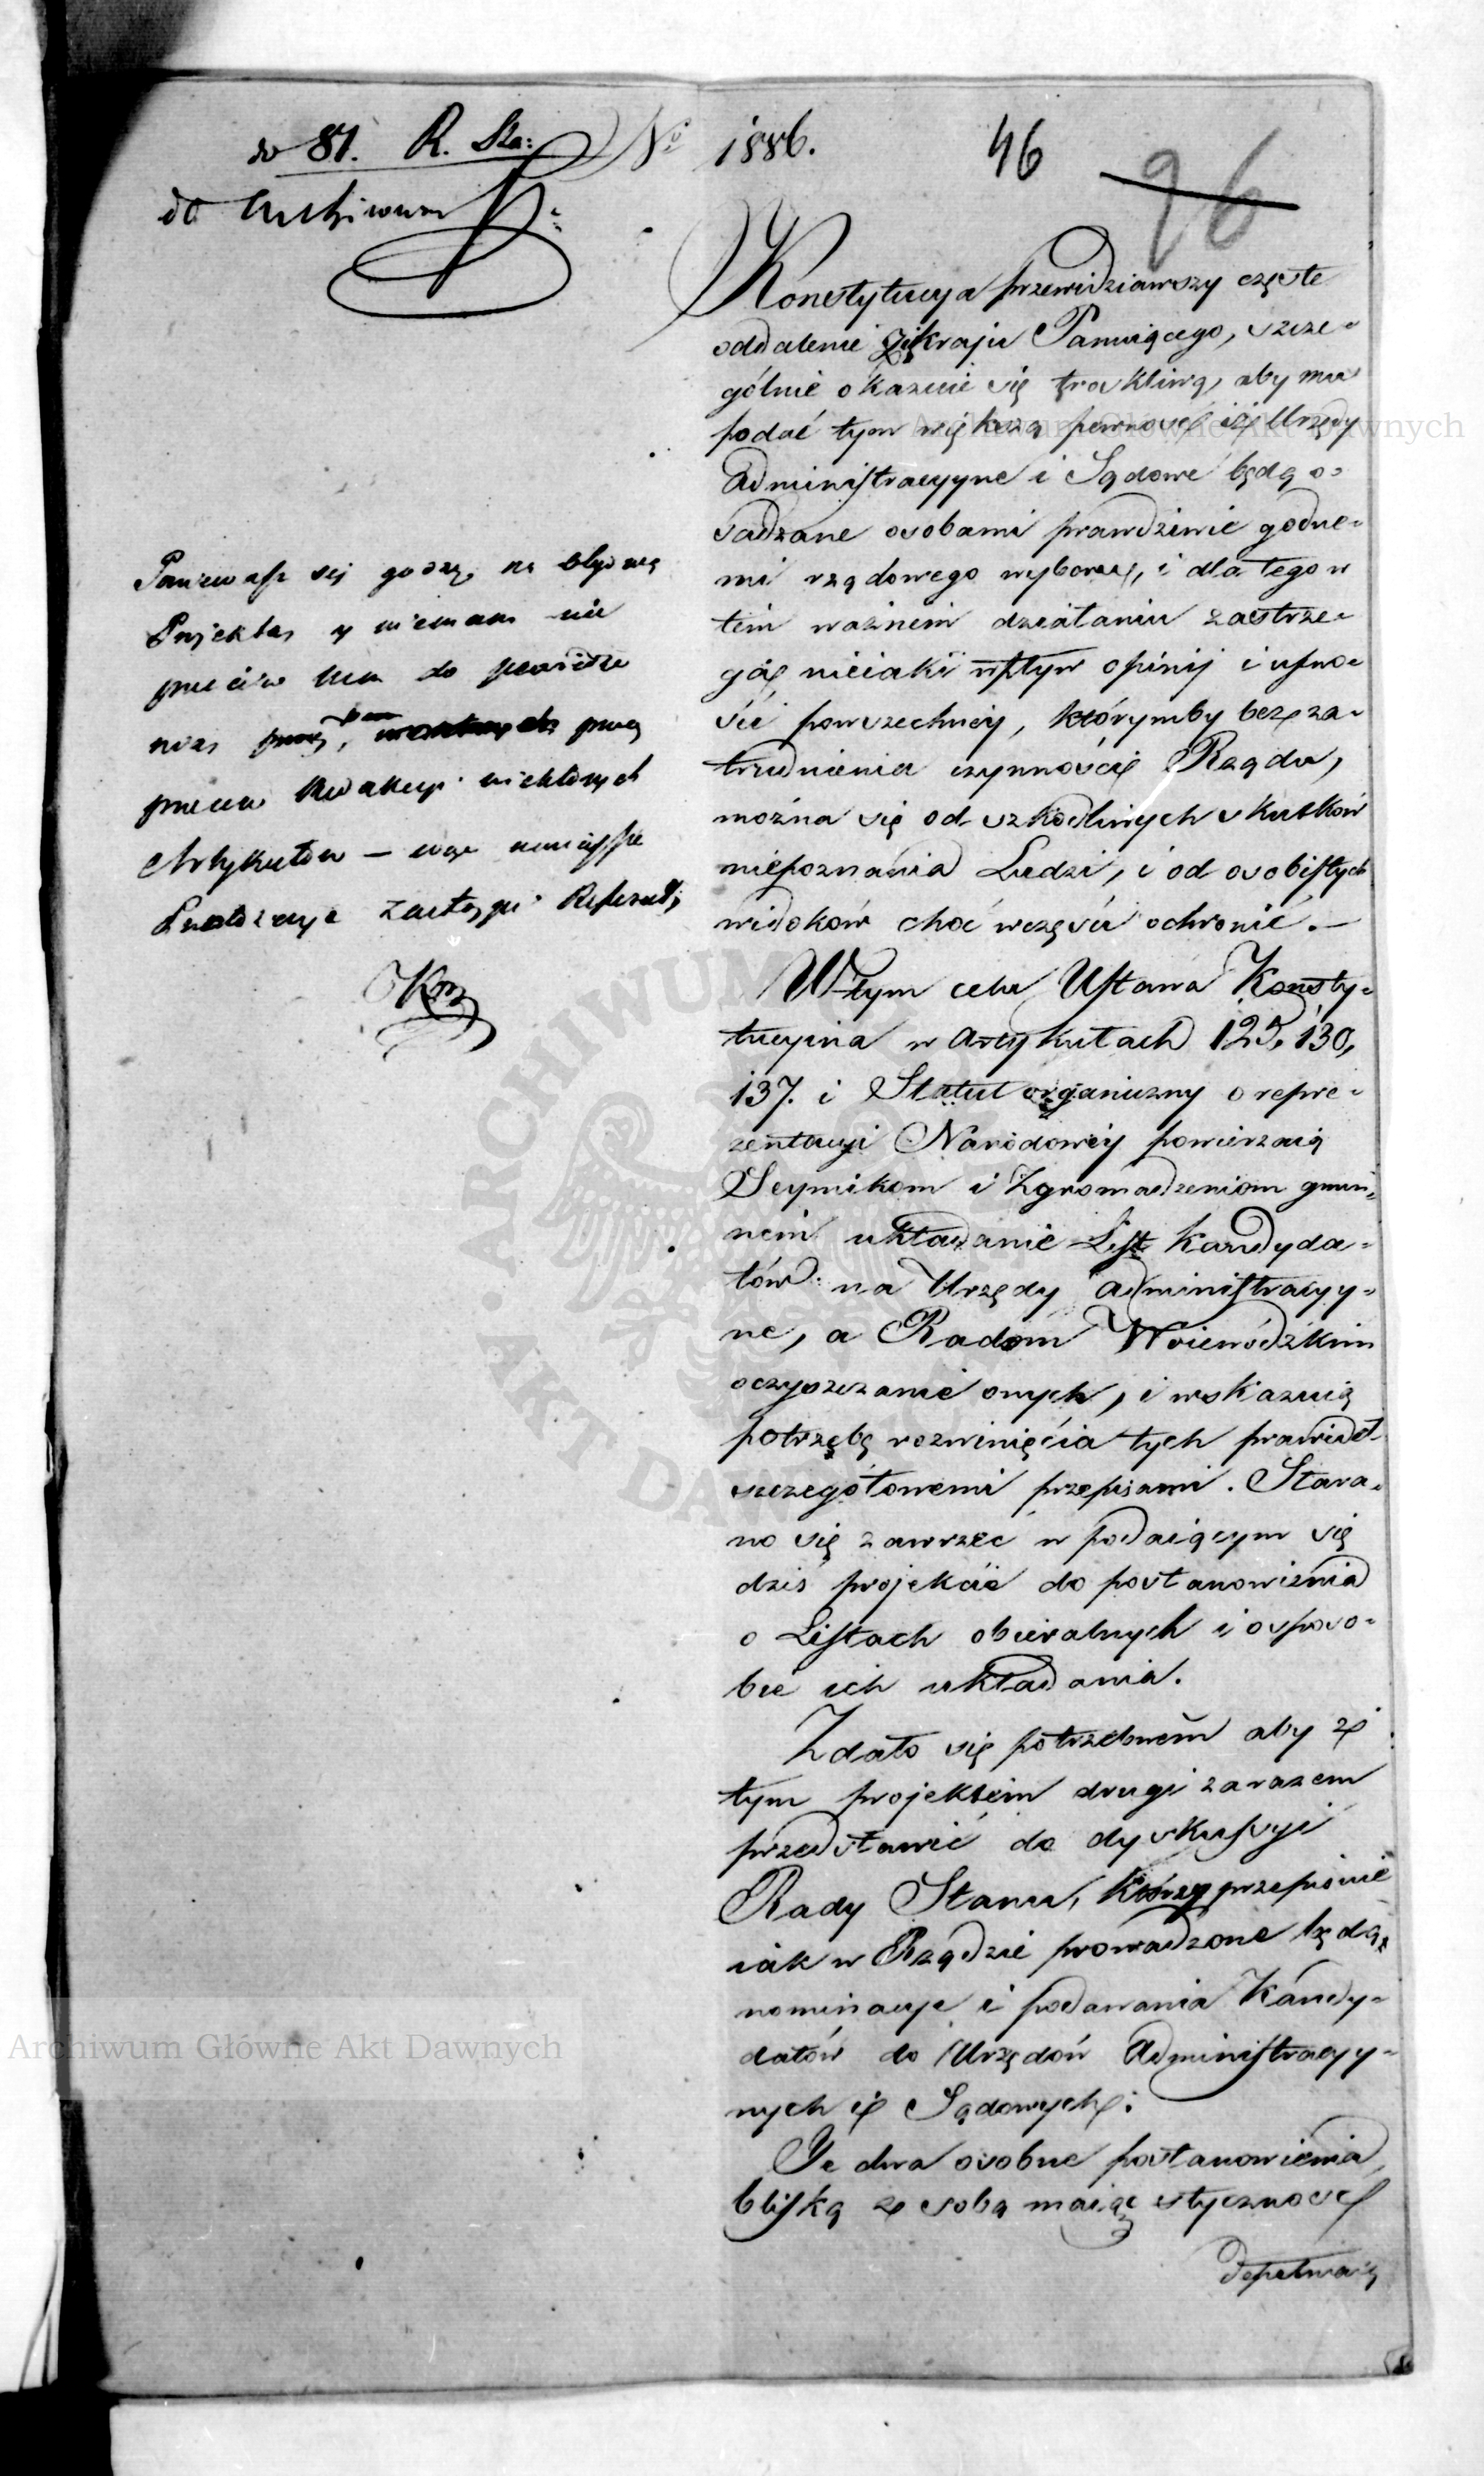 do 81. R. Sta:
do Archiwum
No 1886.
46
96
Konstytucya przewidziawszy częste
oddalenie się z kraju Panuiącego, szcze=
gólnie okazuie się troskliwą, aby mu
podać tym większą pewność iż Urzędy
Administracyyne i Sądowe będą o=
sadzane osobami prawdziwie godne=
mi rządowego wyboru, i dla tego w
tem ważnem działaniu zastrze=
ga nieiaki wpływ opinij i ufno=
ści powszechney, którymby bez za=
trudnienia czynności Rządu,
można się od szkodliwych skutków
niepoznania Ludzi, i od osobistych
widoków choć wczęści ochronić. —
W tym celu Ustawa Konsty=
tucyina w artykułach 125, 130,
137. i Statut organiczny o repre=
zentacyi Narodowéy powierzaią
Seymikom i Zgromadzeniom gmin=
nem układanie List Kandyda=
tów na Urzędy administracyy=
ne, a Radom Woiewódzkim
oczyszczanie onych, i wskazuią
potrzebę rozwinięcia tych prawideł
szczegółowemi przepisami. Stara=
no się zawrzeć w podaiącym się
dziś projekcie do postanowienia
o Listach obieralnych i o sposo=
bie ich układania.
Zdało się potrzebnem aby z
tym projektem drugi zarazem
przedstawić do dyskussyi
Rady Stanu, który przepisuie
iak w Rządzie prowadzone będą
nominacye i podawania Kandy=
datów do Urzędów Administracyy=
nych i Sądowych.
Te dwa osobne postanowienia,
bliską ze sobą maiąc styczność
Ponieważ się godzę na obydwa
Projekta, y niemam nic
przeciw
Artykułów —
Kor